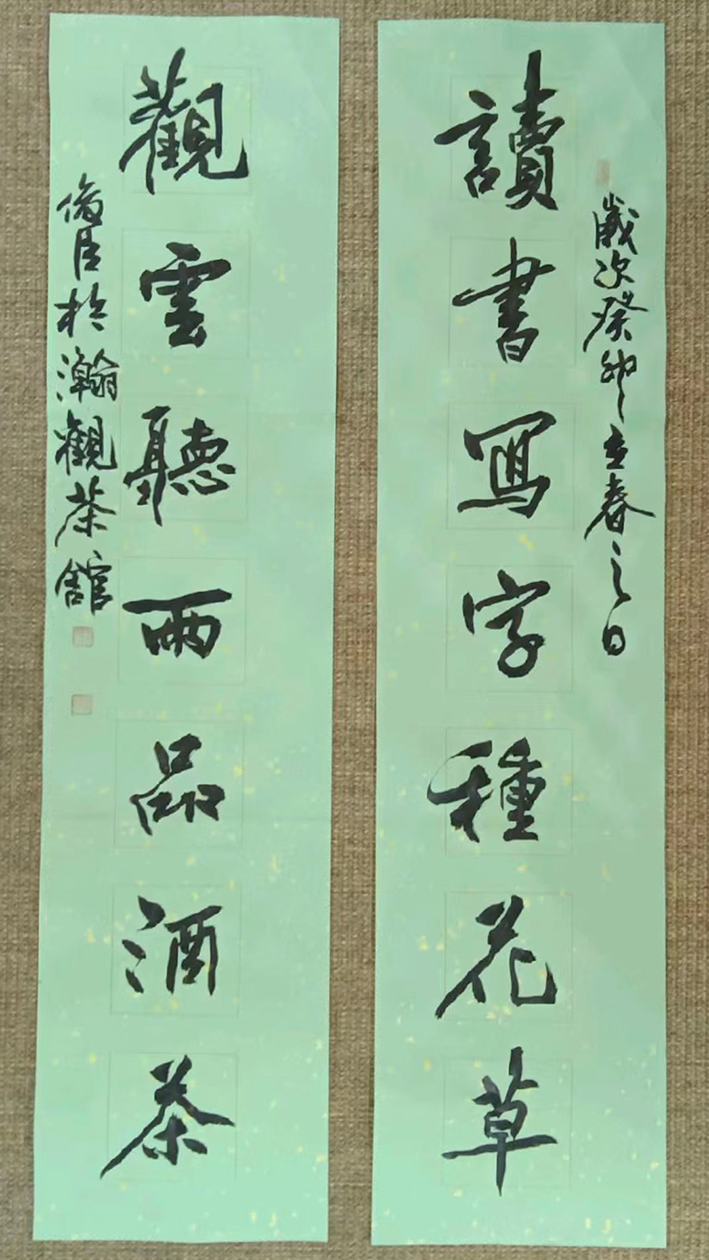 歲次癸卯立春之日
讀書寫字種花草
觀雲聽雨品酒茶
於瀚觀茶館